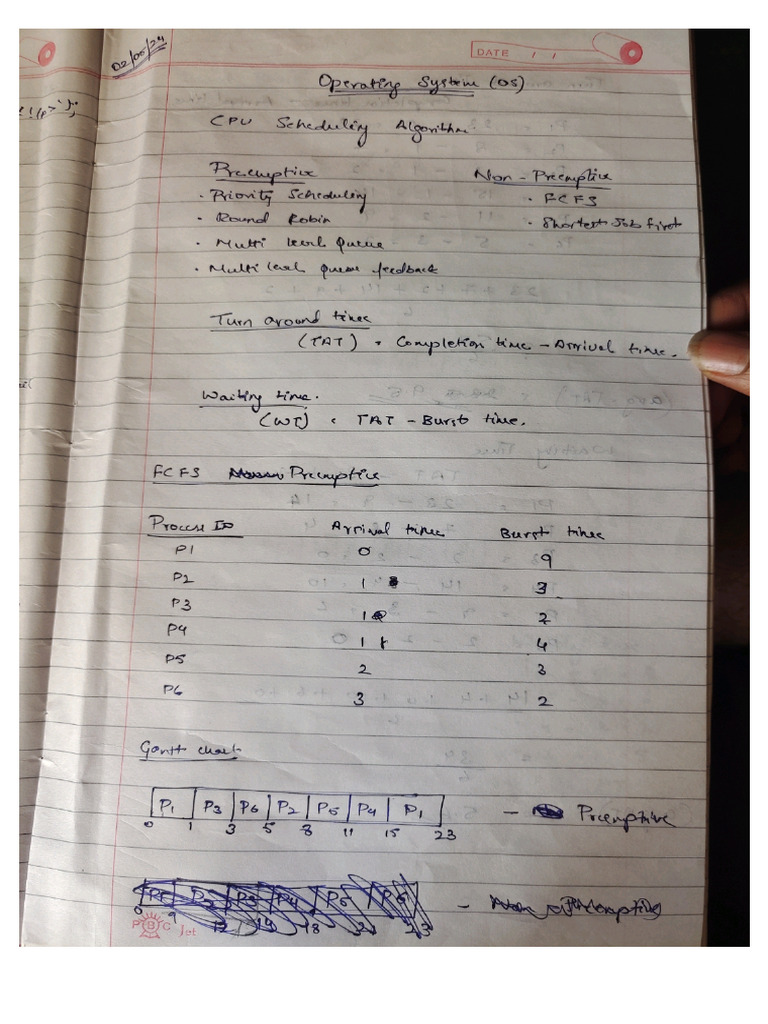 02/05/24
DATE / /
Operating System (OS)
CPU Scheduling Algorithm.
Preemptive Non-Preemptive
• Priority Scheduling • FCFS
• Round Robin • Shortest Job first
• Multi level Queue
• Multi level queue feedback
Turn around time
(TAT) = Completion time - Arrival time.
Waiting time.
(WT) = TAT - Burst time.
FCFS Preemptive
Process ID Arrival time Burst time
P1 0 9
P2 1 3
P3 1 2
P4 1 4
P5 2 3
P6 3 2
Gantt chart
P1 P3 P6 P2 P5 P4 P1 - Preemptive
0 1 3 5 8 11 15 23
P1 P2 P3 P4 P5 P6 -
0 9 12 14 18 23
PBG Jet